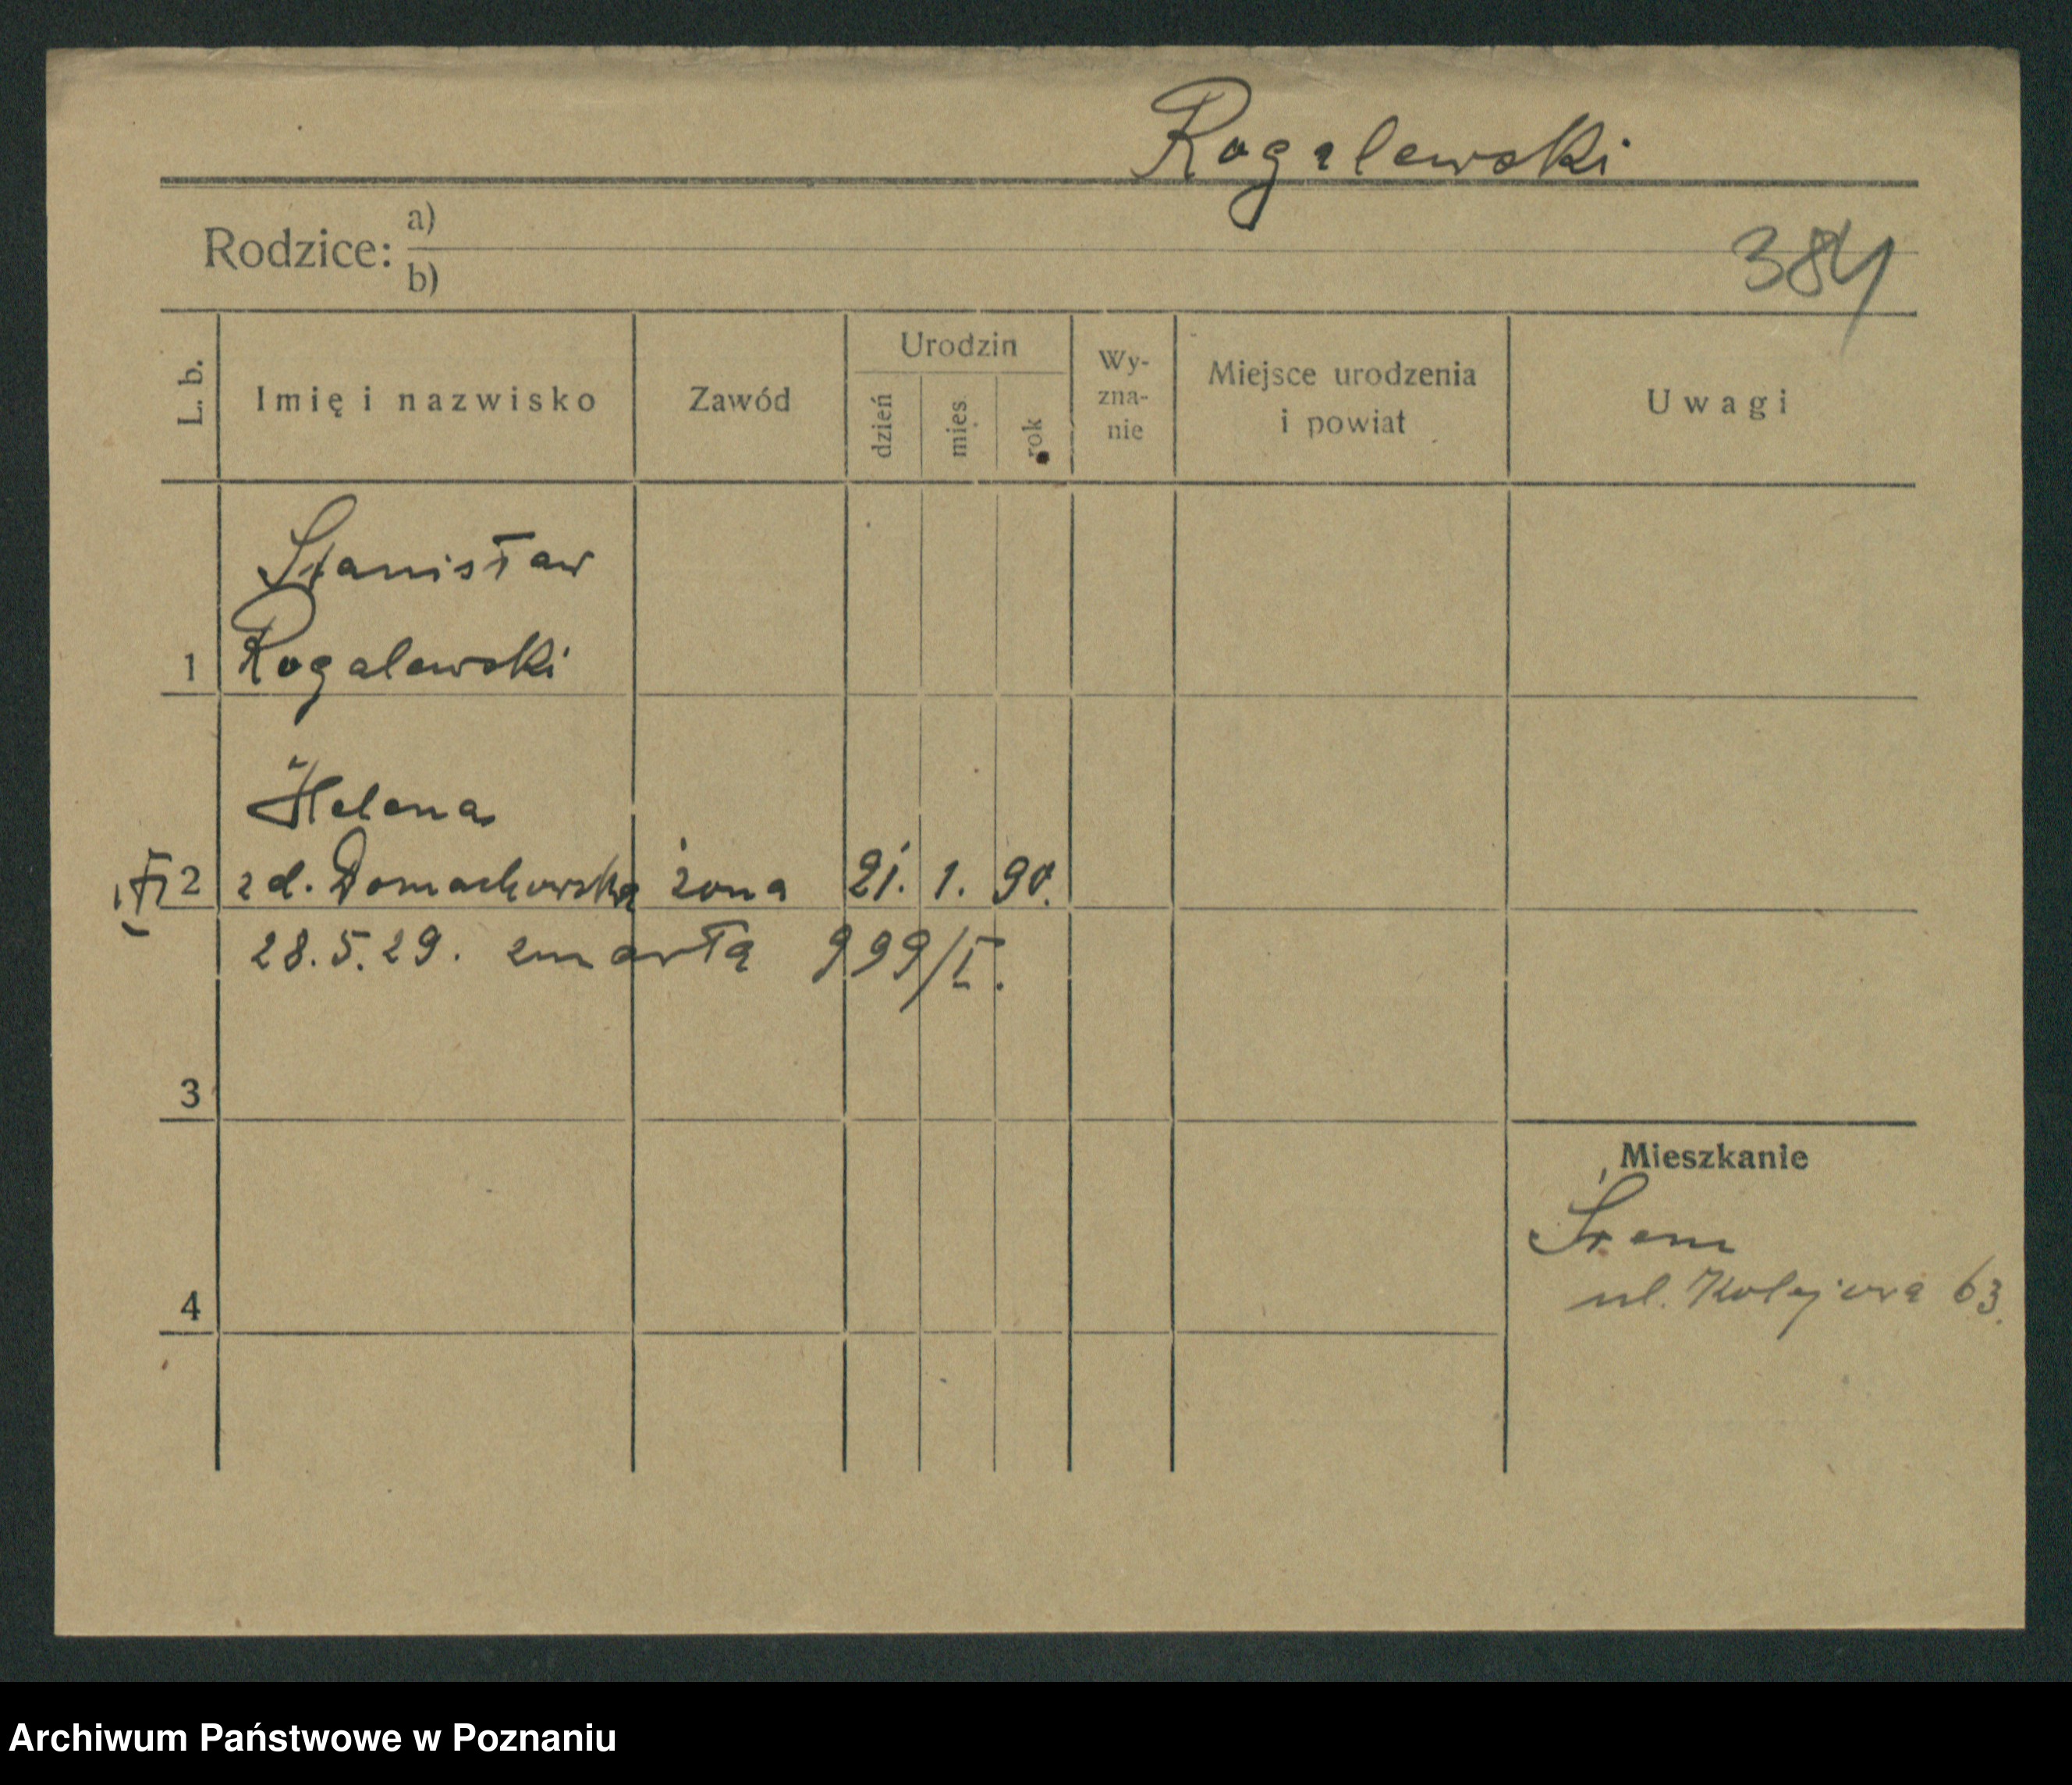 Rogalewski
Rodzice: a)
b)
384
L. b.
Imię i nazwisko
Zawód
Urodzin
dzień
mies.
rok
Wy-
zna-
nie
Miejsce urodzenia
i powiat
Uwagi
Stanisław
1 Rogalewski
Helena
2 z d. Domachowska żona 21. 1. 90.
28.5.29. zmarła 999/I.
3
Mieszkanie
Śrem
ul. Kolejowa 63.
4
Archiwum Państwowe w Poznaniu